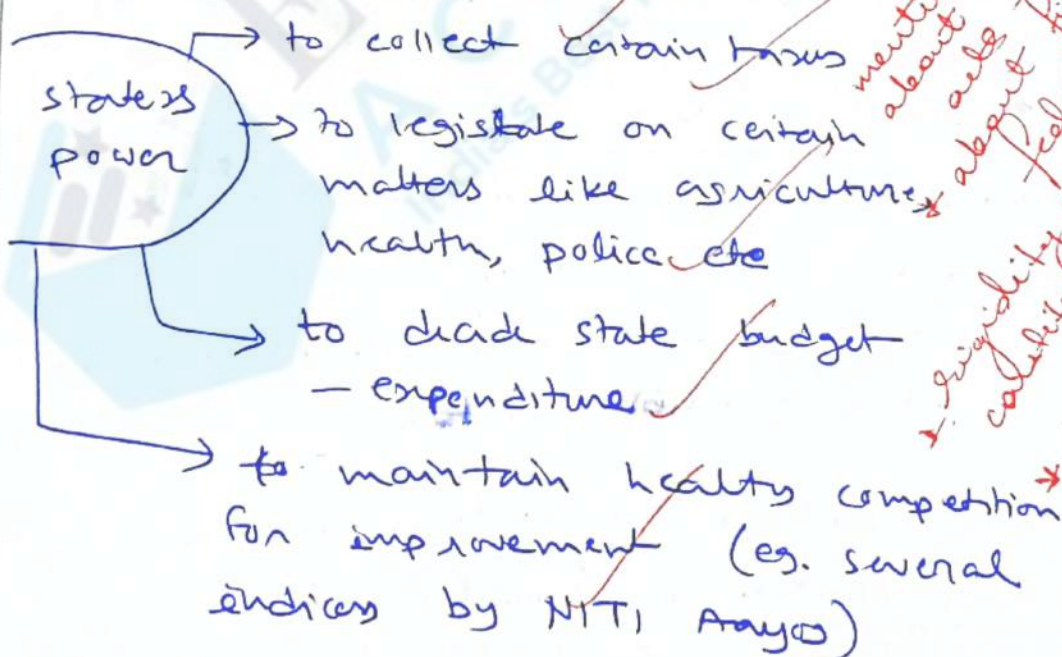 → to collect certain taxes
state's
power
→ to legislate on certain
matters like agriculture,
health, police etc
→ to decide state budget
- expenditure
→ to maintain healthy competition
for improvement (eg. several
indices by NITI Aayog)
about
about
rigidity